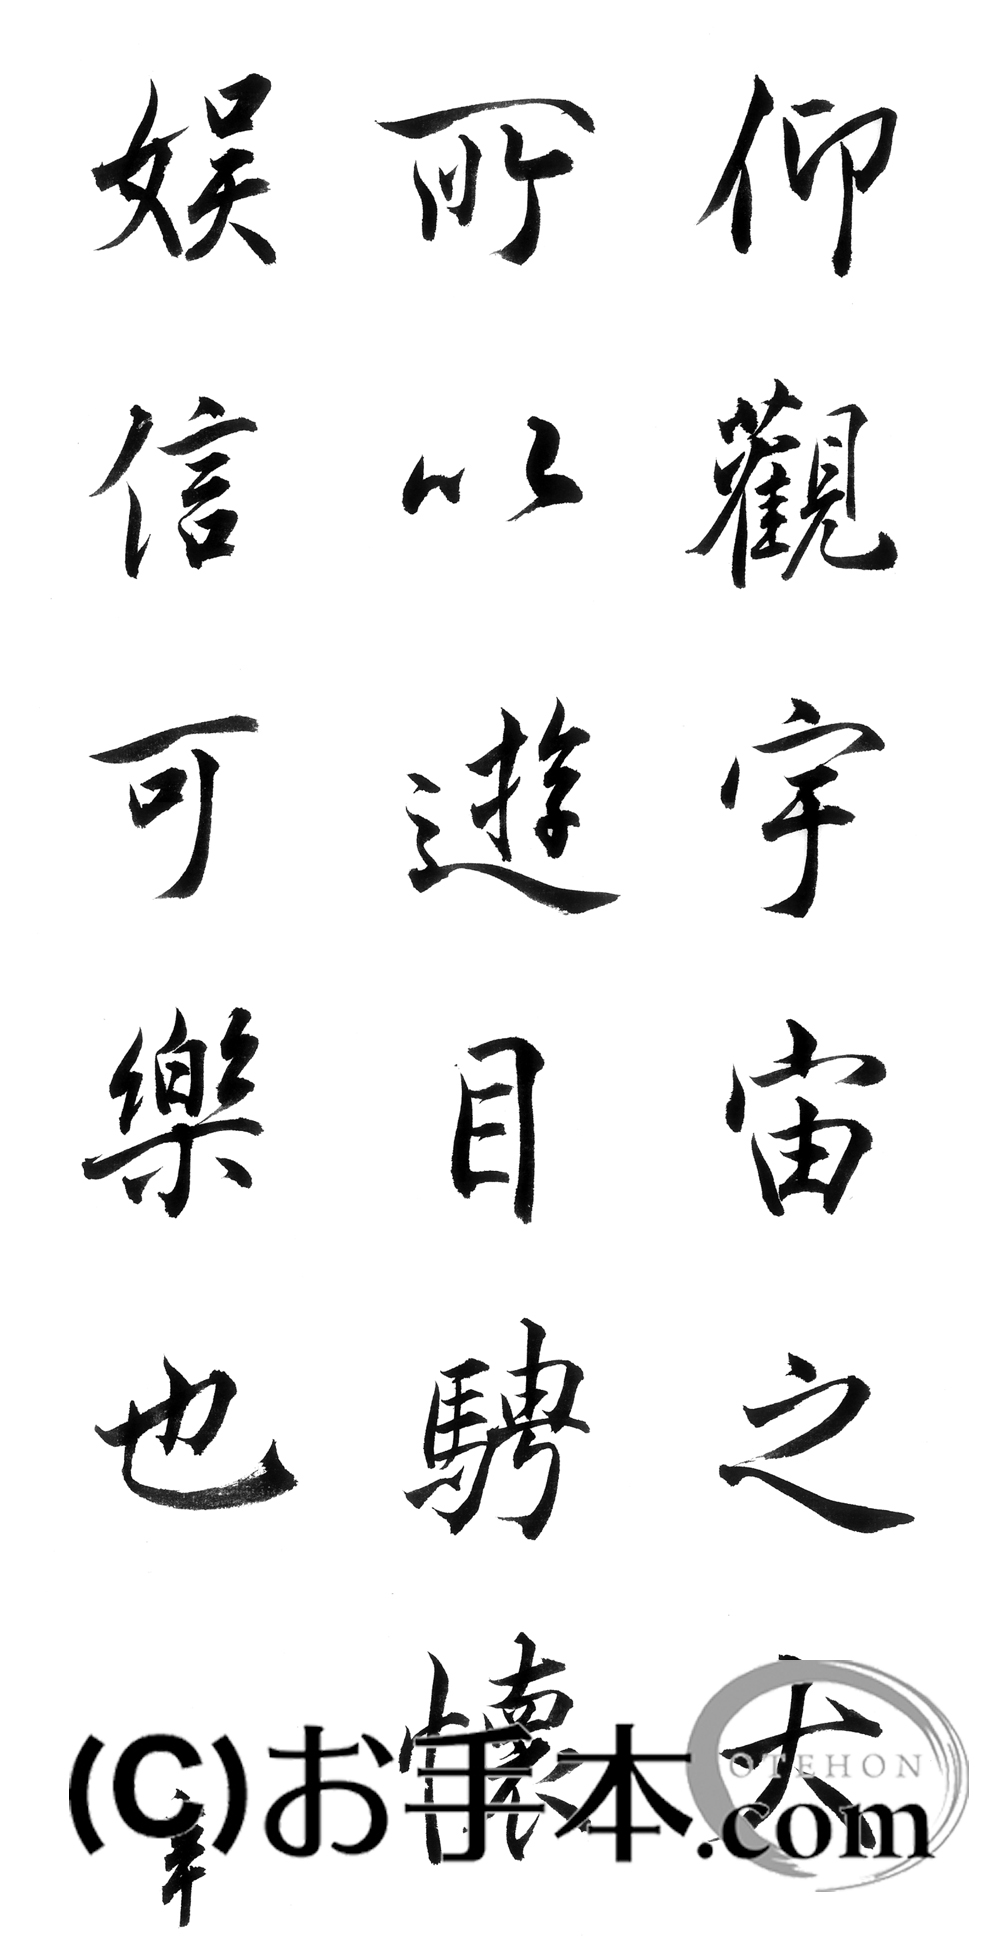 仰觀宇宙之大
所以遊目騁懷
娯信可樂也
(C)お手本.com
OTEHON